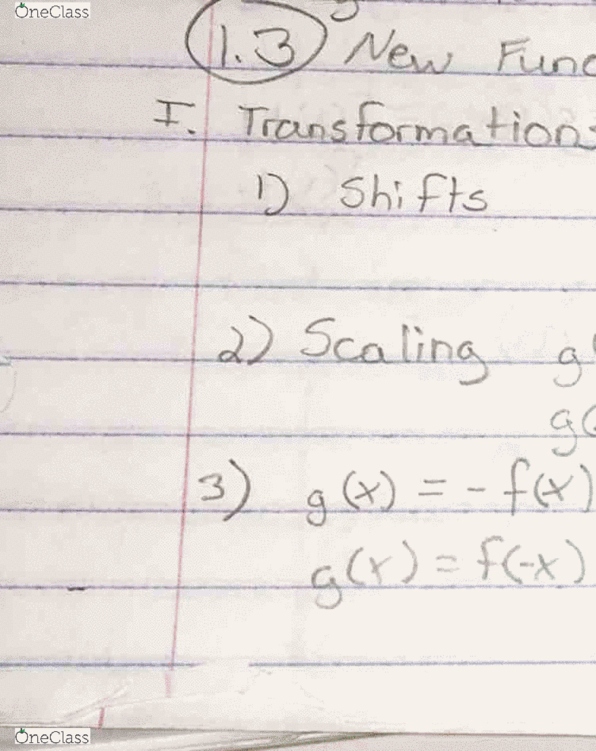 OneClass
1.3 New Func
I. Transformations
1) Shifts
2) Scaling g(
g(
3) g(x) = - f(x)
g(x) = f(-x)
OneClass